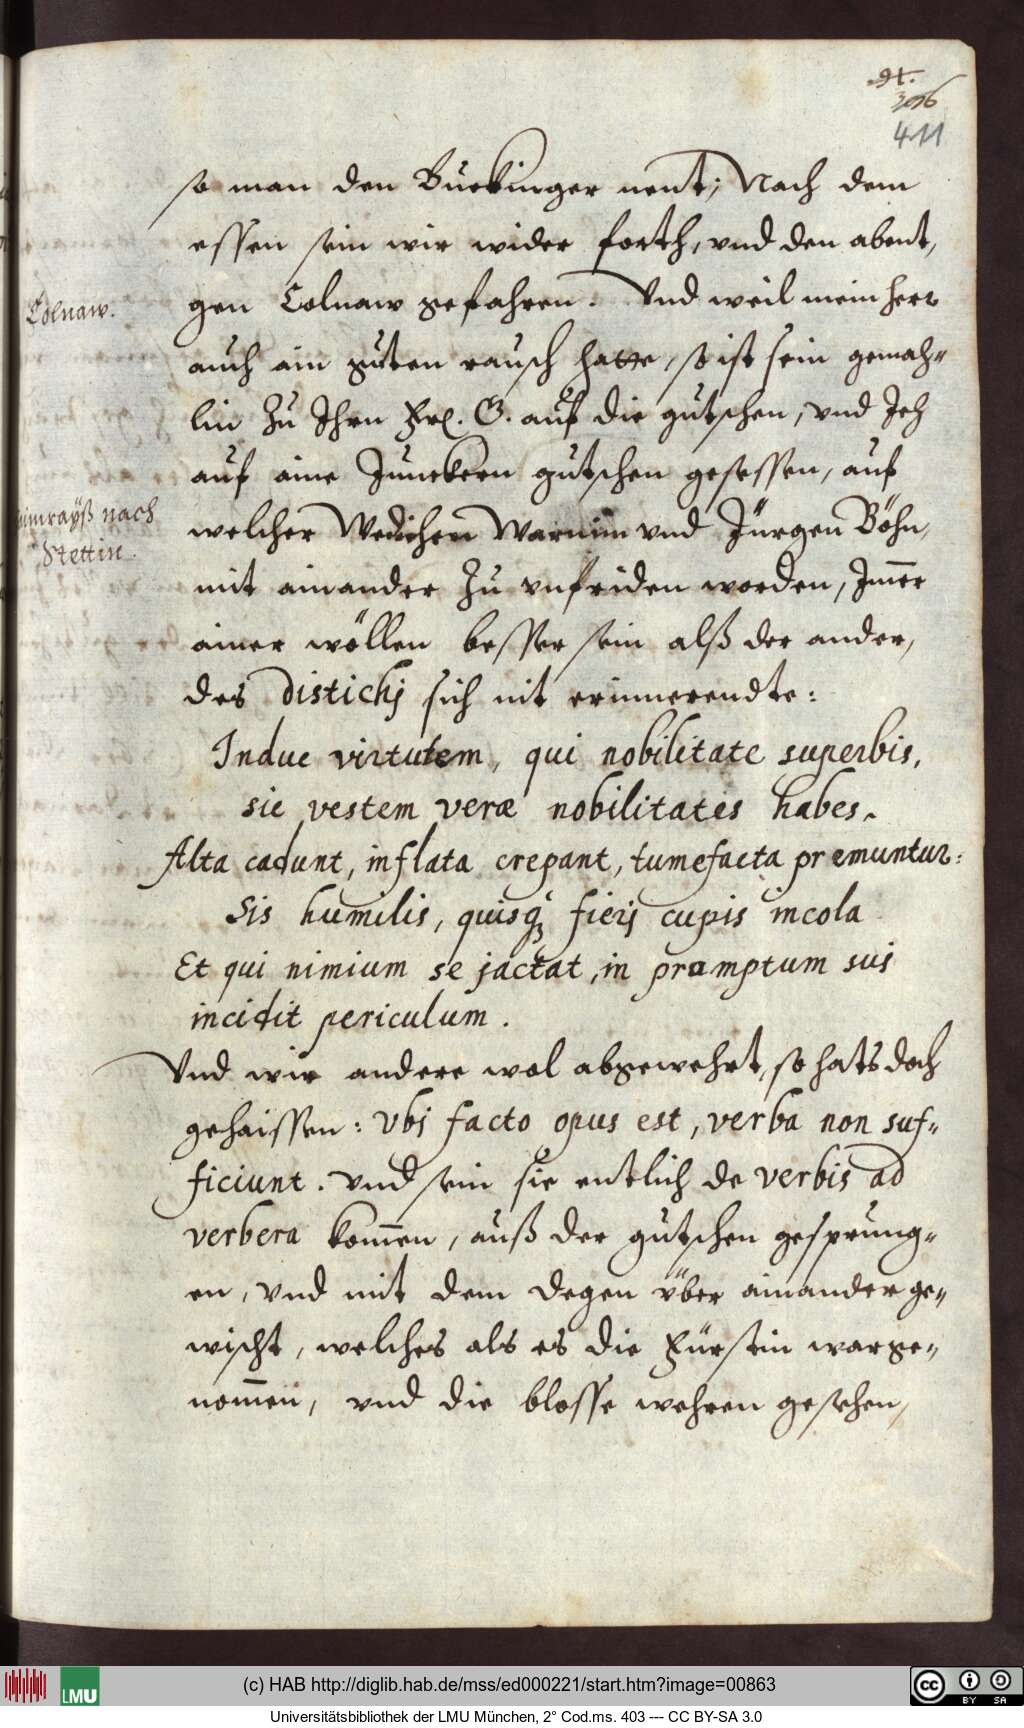 91.
396
411
so man den Buckinger nent; Nach dem
essen sein wir wider forth, vnd den abent,
gen Colnaw gefahren. Vnd weil mein herr
Colnaw.
auch ain guten rausch hatte, so ist sein gemah-
lin zu Ihrn Frl. G. auf die gutschen, vnd Ich
auf aine Junckern gutschen gesessen, auf
raÿß nach
Stettin.
welcher Wedichen Warnim vnd Jürgen Böhn,
mit ainander zu vnfriden worden, Im̄er
ainer wöllen besser sein alß der ander,
des Distichj sich nit erinnerendte:
Indue virtutem, qui nobilitate superbis,
sic vestem veræ nobilitatis habes.
Alta cadunt, inflata crepant, tumefacta premuntur:
Sis humilis, quisq; fierj cupis incola
Et qui nimium se jactat, in promptum suj
incidit periculum.
Vnd wir andere wol abgewehrt, so hats doch
gehaissen: Vbj facto opus est, verba non suf-
ficiunt. vnd sein sie entlich de verbis ad
verbera kom̄en, auß der gutschen gesprung-
en, vnd mit dem degen über ainander ge-
wischt, welches als es die Fürstin warge-
nom̄en, vnd die blosse wehren gesehen,
(c) HAB http://diglib.hab.de/mss/ed000221/start.htm?image=00863
Universitätsbibliothek der LMU München, 2° Cod.ms. 403 --- CC BY-SA 3.0
LMU
cc BY SA